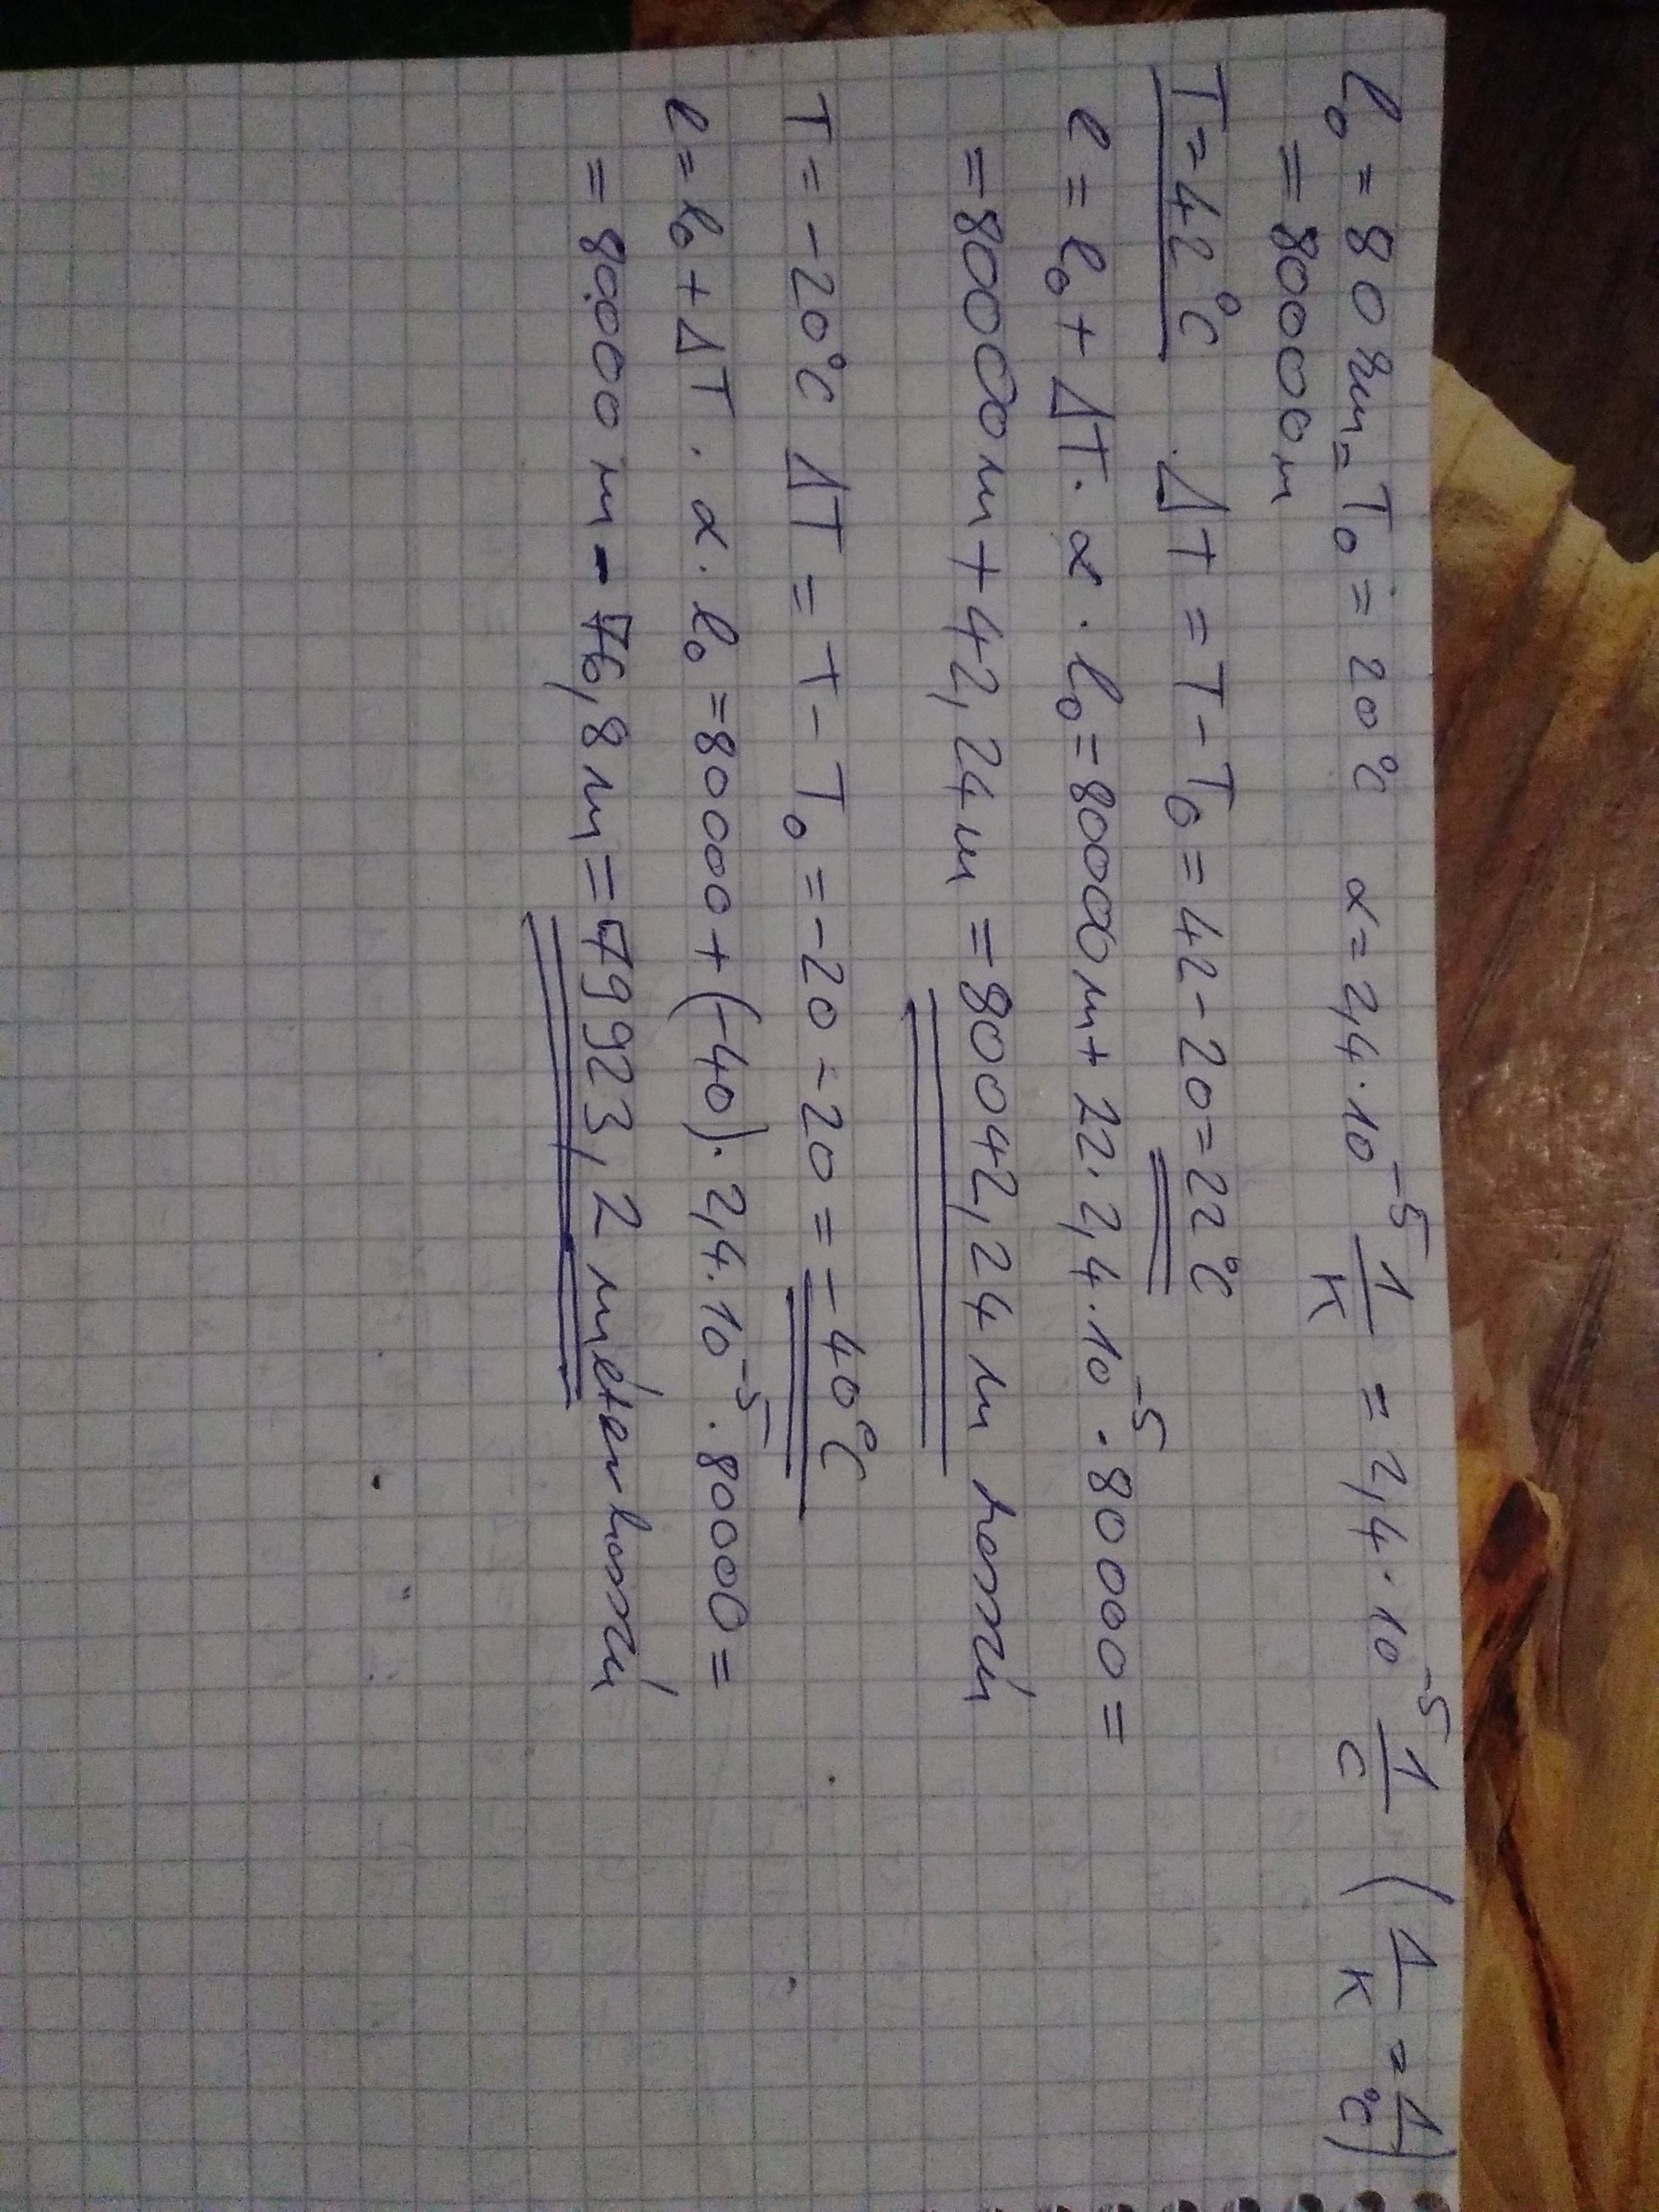 l₀ = 80 km = T₀ = 20 °C α = 2,4 · 10⁻⁵ 1/K = 2,4 · 10⁻⁵ 1/C (1/K = 1/°C)
= 80000 m
T = 42 °C . ΔT = T - T₀ = 42 - 20 = 22 °C
l = l₀ + ΔT · α · l₀ = 80000 m + 22 · 2,4 · 10⁻⁵ · 80000 =
= 80000 m + 42,24 m = 80042,24 m hosszú
T = -20 °C ΔT = T - T₀ = -20 - 20 = -40 °C
l = l₀ + ΔT · α · l₀ = 80000 + (-40) · 2,4 · 10⁻⁵ · 80000 =
= 80000 m - 76,8 m = 79923,2 méter hosszú